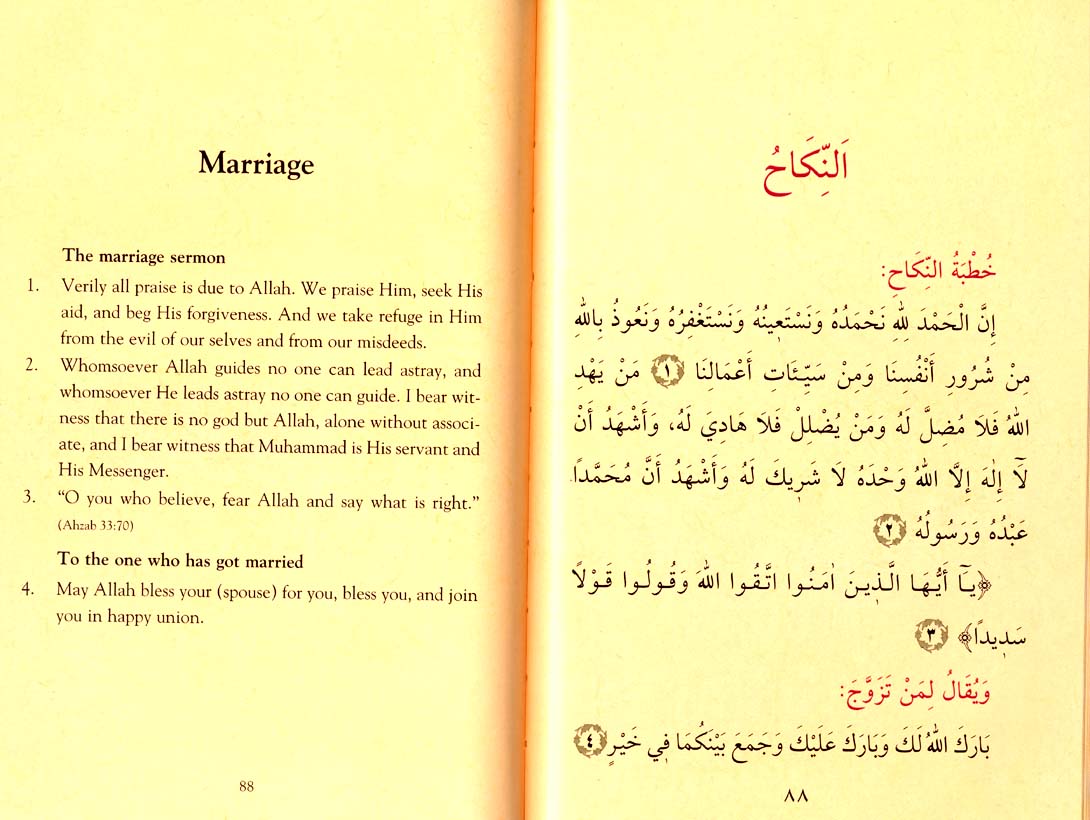 Marriage
The marriage sermon
1. Verily all praise is due to Allah. We praise Him, seek His
aid, and beg His forgiveness. And we take refuge in Him
from the evil of our selves and from our misdeeds.
2. Whomsoever Allah guides no one can lead astray, and
whomsoever He leads astray no one can guide. I bear wit-
ness that there is no god but Allah, alone without associ-
ate, and I bear witness that Muhammad is His servant and
His Messenger.
3. “O you who believe, fear Allah and say what is right.”
(Ahzab 33:70)
To the one who has got married
4. May Allah bless your (spouse) for you, bless you, and join
you in happy union.
88
اَلنِّكَاحُ
خُطْبَةُ النِّكَاحِ:
إِنَّ الْحَمْدَ لِلّٰهِ نَحْمَدُهُ وَنَسْتَعِينُهُ وَنَسْتَغْفِرُهُ وَنَعُوذُ بِاللّٰهِ
مِنْ شُرُورِ أَنْفُسِنَا وَمِنْ سَيِّـَٔاتِ أَعْمَالِنَا ١ مَنْ يَهْدِ
اللّٰهُ فَلَا مُضِلَّ لَهُ وَمَنْ يُضْلِلْ فَلَا هَادِيَ لَهُ، وَأَشْهَدُ أَنْ
لَآ إِلٰهَ إِلَّا اللّٰهُ وَحْدَهُ لَا شَرِيكَ لَهُ وَأَشْهَدُ أَنَّ مُحَمَّداً
عَبْدُهُ وَرَسُولُهُ ٢
﴿يَآ أَيُّهَا الَّذِينَ اٰمَنُوا اتَّقُوا اللّٰهَ وَقُولُوا قَوْلاً
سَدِيداً﴾ ٣
وَيُقَالُ لِمَنْ تَزَوَّجَ:
بَارَكَ اللّٰهُ لَكَ وَبَارَكَ عَلَيْكَ وَجَمَعَ بَيْنَكُمَا فِي خَيْرٍ ٤
٨٨